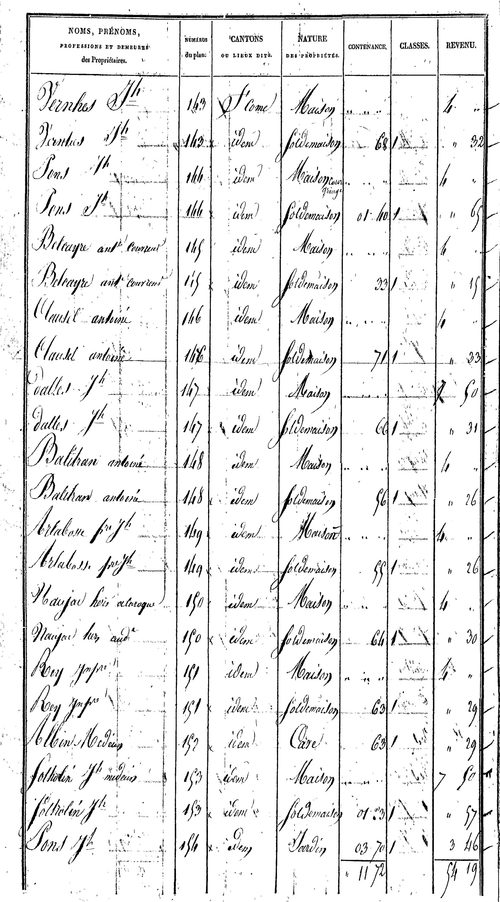 NOMS, PRÉNOMS, PROFESSIONS ET DEMEURES des Propriétaires. NUMÉROS du plan. CANTONS OU LIEUX DITS. NATURE DES PROPRIÉTÉS. CONTENANCE. CLASSES. REVENU.
Vernhes Jh 143 St Come Maison " " " 4 "
Vernhes Jh 143 idem sol de maison 68 1 " 32
Pons Jh 144 idem Maison cour grange " " " 4 "
Pons Jh 144 idem sol de maison 01 40 1 " 65
Beleayre ant. couvreur 145 idem Maison " " " 4 "
Beleayre ant. couvreur 145 idem sol de maison 33 1 " 15
Clausel antoine 146 idem Maison " " " 4 "
Clausel antoine 146 idem sol de maison 71 1 " 33
dalles Jh 147 idem Maison " " " 50
dalles Jh 147 idem sol de maison 66 1 " 31
antoine 148 idem Maison " " " 4 "
antoine 148 idem sol de maison 56 1 " 26
Jh 149 idem Maison " " " 4 "
Jh 149 idem sol de maison 55 1 " 26
Naujac 150 idem Maison " " " 4 "
Naujac 150 idem sol de maison 64 1 " 30
Rey 151 idem Maison " " " 4 "
Rey 151 idem sol de maison 63 1 " 29
Albin Medecin 152 idem Cave 63 1 " 29
Jh medecin 153 idem Maison " " " 7 50
Jh 153 idem sol de maison 01 23 1 " 57
Pons Jh 154 idem Jardin 03 70 1 3 46
" 11 72 54 19